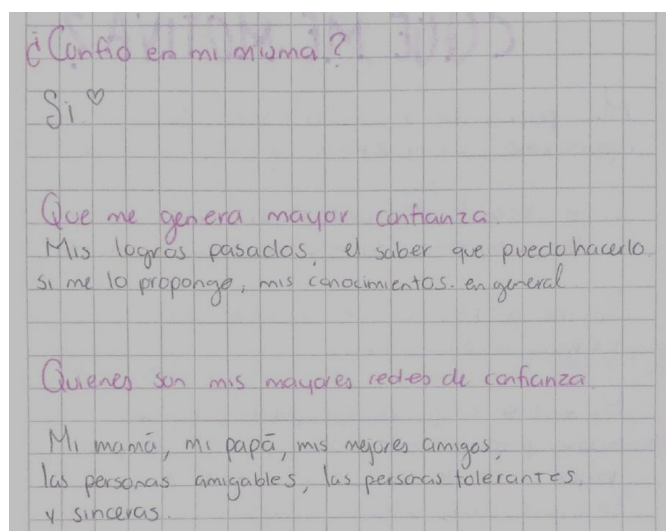 ¿Confio en mi misma?
Si ♡
Que me genera mayor confianza.
Mis logros pasados, el saber que puedo hacerlo
si me lo propongo, mis conocimientos. en general
Quienes son mis mayores redes de confianza
Mi mamá, mi papá, mis mejores amigos,
las personas amigables, las personas tolerantes,
y sinceras.